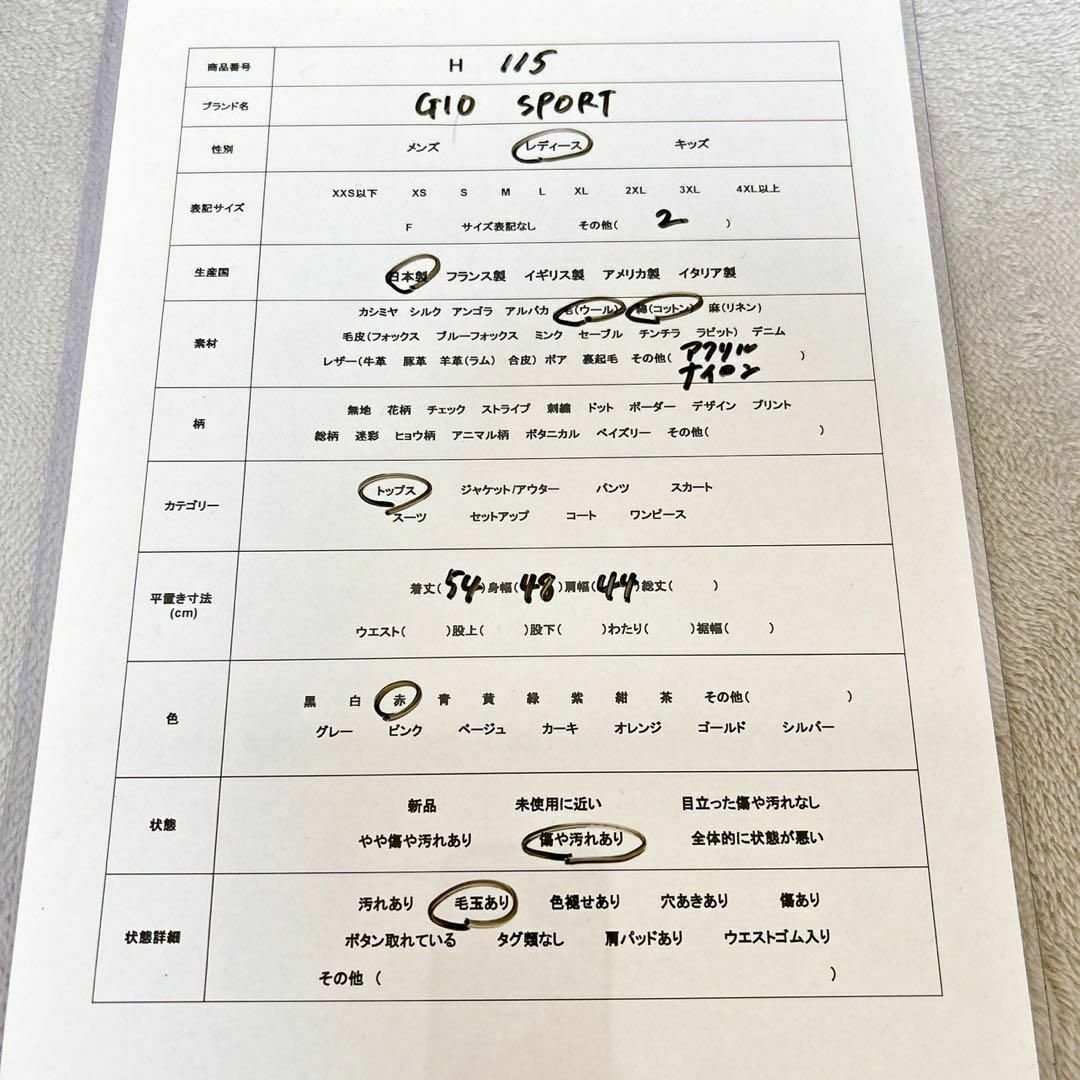 商品番号 H 115
ブランド名 GIO SPORT
性別 メンズ レディース キッズ
表記サイズ XXS以下 XS S M L XL 2XL 3XL 4XL以上
F サイズ表記なし その他( 2 )
生産国 日本製 フランス製 イギリス製 アメリカ製 イタリア製
素材 カシミヤ シルク アンゴラ アルパカ 毛(ウール) 綿(コットン) 麻(リネン)
毛皮(フォックス ブルーフォックス ミンク セーブル チンチラ ラビット) デニム
レザー(牛革 豚革 羊革(ラム) 合皮) ボア 裏起毛 その他( アクリル )
ナイロン
柄 無地 花柄 チェック ストライプ 刺繍 ドット ボーダー デザイン プリント
総柄 迷彩 ヒョウ柄 アニマル柄 ボタニカル ペイズリー その他( )
カテゴリー トップス ジャケット/アウター パンツ スカート
スーツ セットアップ コート ワンピース
平置き寸法 着丈( 54 )身幅( 48 )肩幅( 44 )総丈( )
(cm) ウエスト( )股上( )股下( )わたり( )裾幅( )
色 黒 白 赤 青 黄 緑 紫 紺 茶 その他( )
グレー ピンク ベージュ カーキ オレンジ ゴールド シルバー
状態 新品 未使用に近い 目立った傷や汚れなし
やや傷や汚れあり 傷や汚れあり 全体的に状態が悪い
状態詳細 汚れあり 毛玉あり 色褪せあり 穴あきあり 傷あり
ボタン取れている タグ類なし 肩パッドあり ウエストゴム入り
その他 ( )